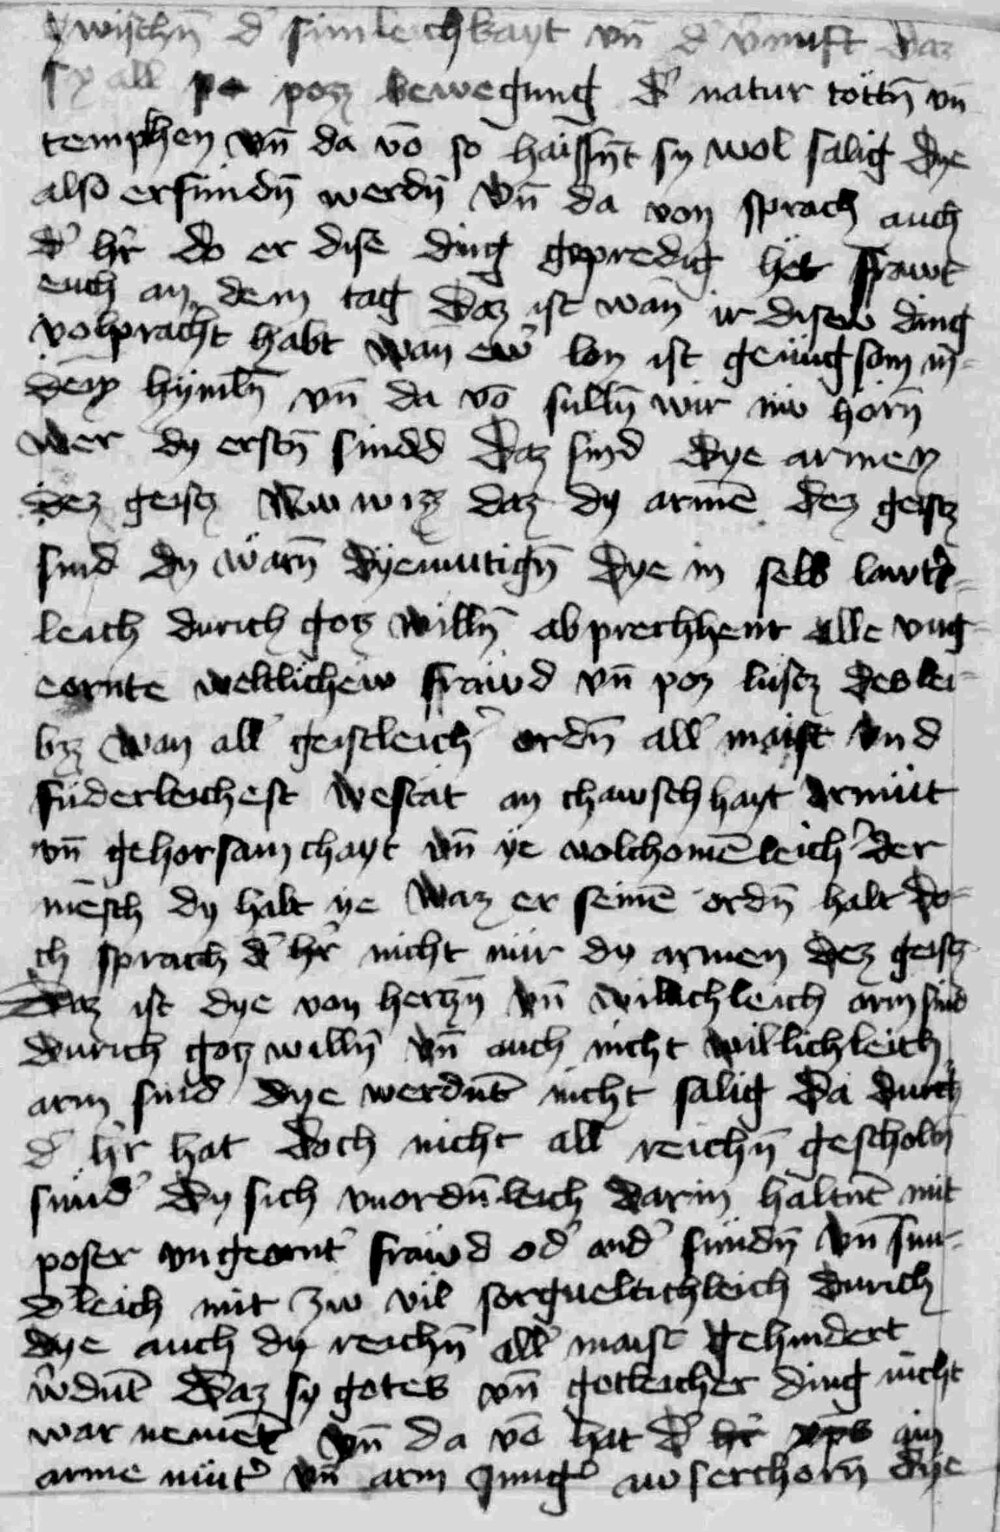 zwischn̄ d' sinnleichkayt vn̄ d' v'nuft daz
sy all pe pozz bewegung d' natur töttn̄ vn̄
temphen vn̄ da vō so haissn̄t sy wol salig dye
also erfundn̄ werdn̄ vn̄ da von sprach auch
d' h'r do er dise ding gepredig het frawt
euch an dem tag daz ist wan̄ ir disew ding
volpracht habt wan ew' lon ist genügsam in̄
dem hymln̄ vn̄ da vō sulln̄ wir nw hörn̄
wer dy erstn̄ sindd daz sind dye armen
dez geistz Nw wizz daz dy armē dez geistz
sind dy warn̄ dyemutign̄ dye in selb lawt'r-
leich durich gotz willn̄ abprechhent alle vng
eornte weltlichew frawd vn̄ poz lustz des lei-
bzz wan all' geistleich' ordn̄ all' maist vnd
süderleichest westat an chawschhayt armüt
vn̄ gehorsamchayt vn̄ ye volchomēleich' der
mēsch dy halt ye waz er seinē ordn̄ halt do-
ch sprach d' h'r nicht nür dy armen dez geistz
daz ist dye von hertzn̄ vn̄ willichleich arm sind
durich gotz willn̄ vn̄ auch nicht willichleich
arm sind dye werdnt nicht salig da durch
d' h'r hat doch nicht all reichn̄ gescholtn̄
sund' dy sich vnordn̄leich darin haltnt mit
poser vngeornt' frawd od' and' sündn̄ vn̄ sun-
d'leich mit zw vil sorgueltichleich durich
dye auch dy reichn̄ all' maist gehindert
w'dnt daz sy gotes vn̄ gotleicher ding nicht
war nement vn̄ da vō hat d' h'r xp̄s im
arme müt' vn̄ arm jung' awserchorn̄ dye